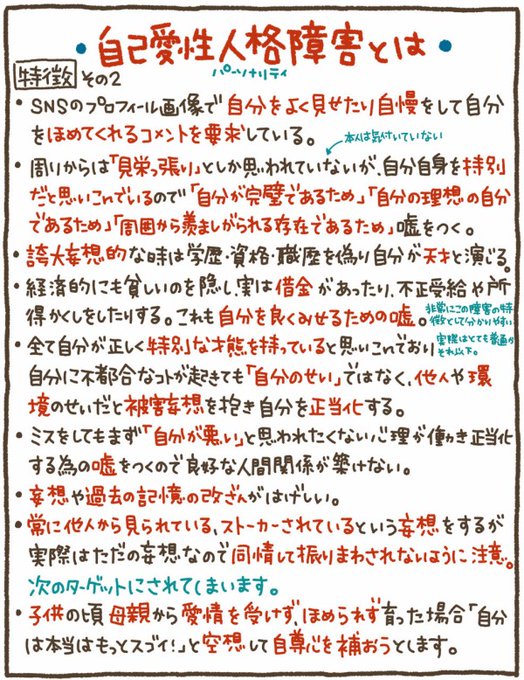 ・自己愛性人格障害とは・
パーソナリティ
特徴 その2
・SNSのプロフィール画像で自分をよく見せたり自慢をして自分
をほめてくれるコメントを要求している。
本人は気付いていない
・周りからは「見栄っ張り」としか思われていないが、自分自身を特別
だと思いこんでいるので「自分が完璧であるため」「自分の理想の自分
であるため」「周囲から羨ましがられる存在であるため」嘘をつく。
・誇大妄想的な時は学歴・資格・職歴を偽り自分が天才と演じる。
・経済的にも貧しいのを隠し、実は借金があったり、不正受給や所
得かくしをしたりする。これも自分を良くみせるための嘘。
非常にこの障害の特
徴として分かりやすい
・全て自分が正しく特別な才能を持っていると思いこんでおり
実際はとても普通か
それ以下。
自分に不都合なコトが起きても「自分のせい」ではなく、他人や環
境のせいだと被害妄想を抱き自分を正当化する。
・ミスをしてもまず「自分が悪い」と思われたくない心理が働き正当化
する為の嘘をつくので良好な人間関係が築けない。
・妄想や過去の記憶の改ざんがはげしい。
・常に他人から見られている、ストーカーされているという妄想をするが
実際はただの妄想なので同情して振りまわされないように注意。
次のターゲットにされてしまいます。
・子供の頃母親から愛情を受けず、ほめられず育った場合「自分
は本当はもっとスゴイ!」と空想して自尊心を補おうとします。